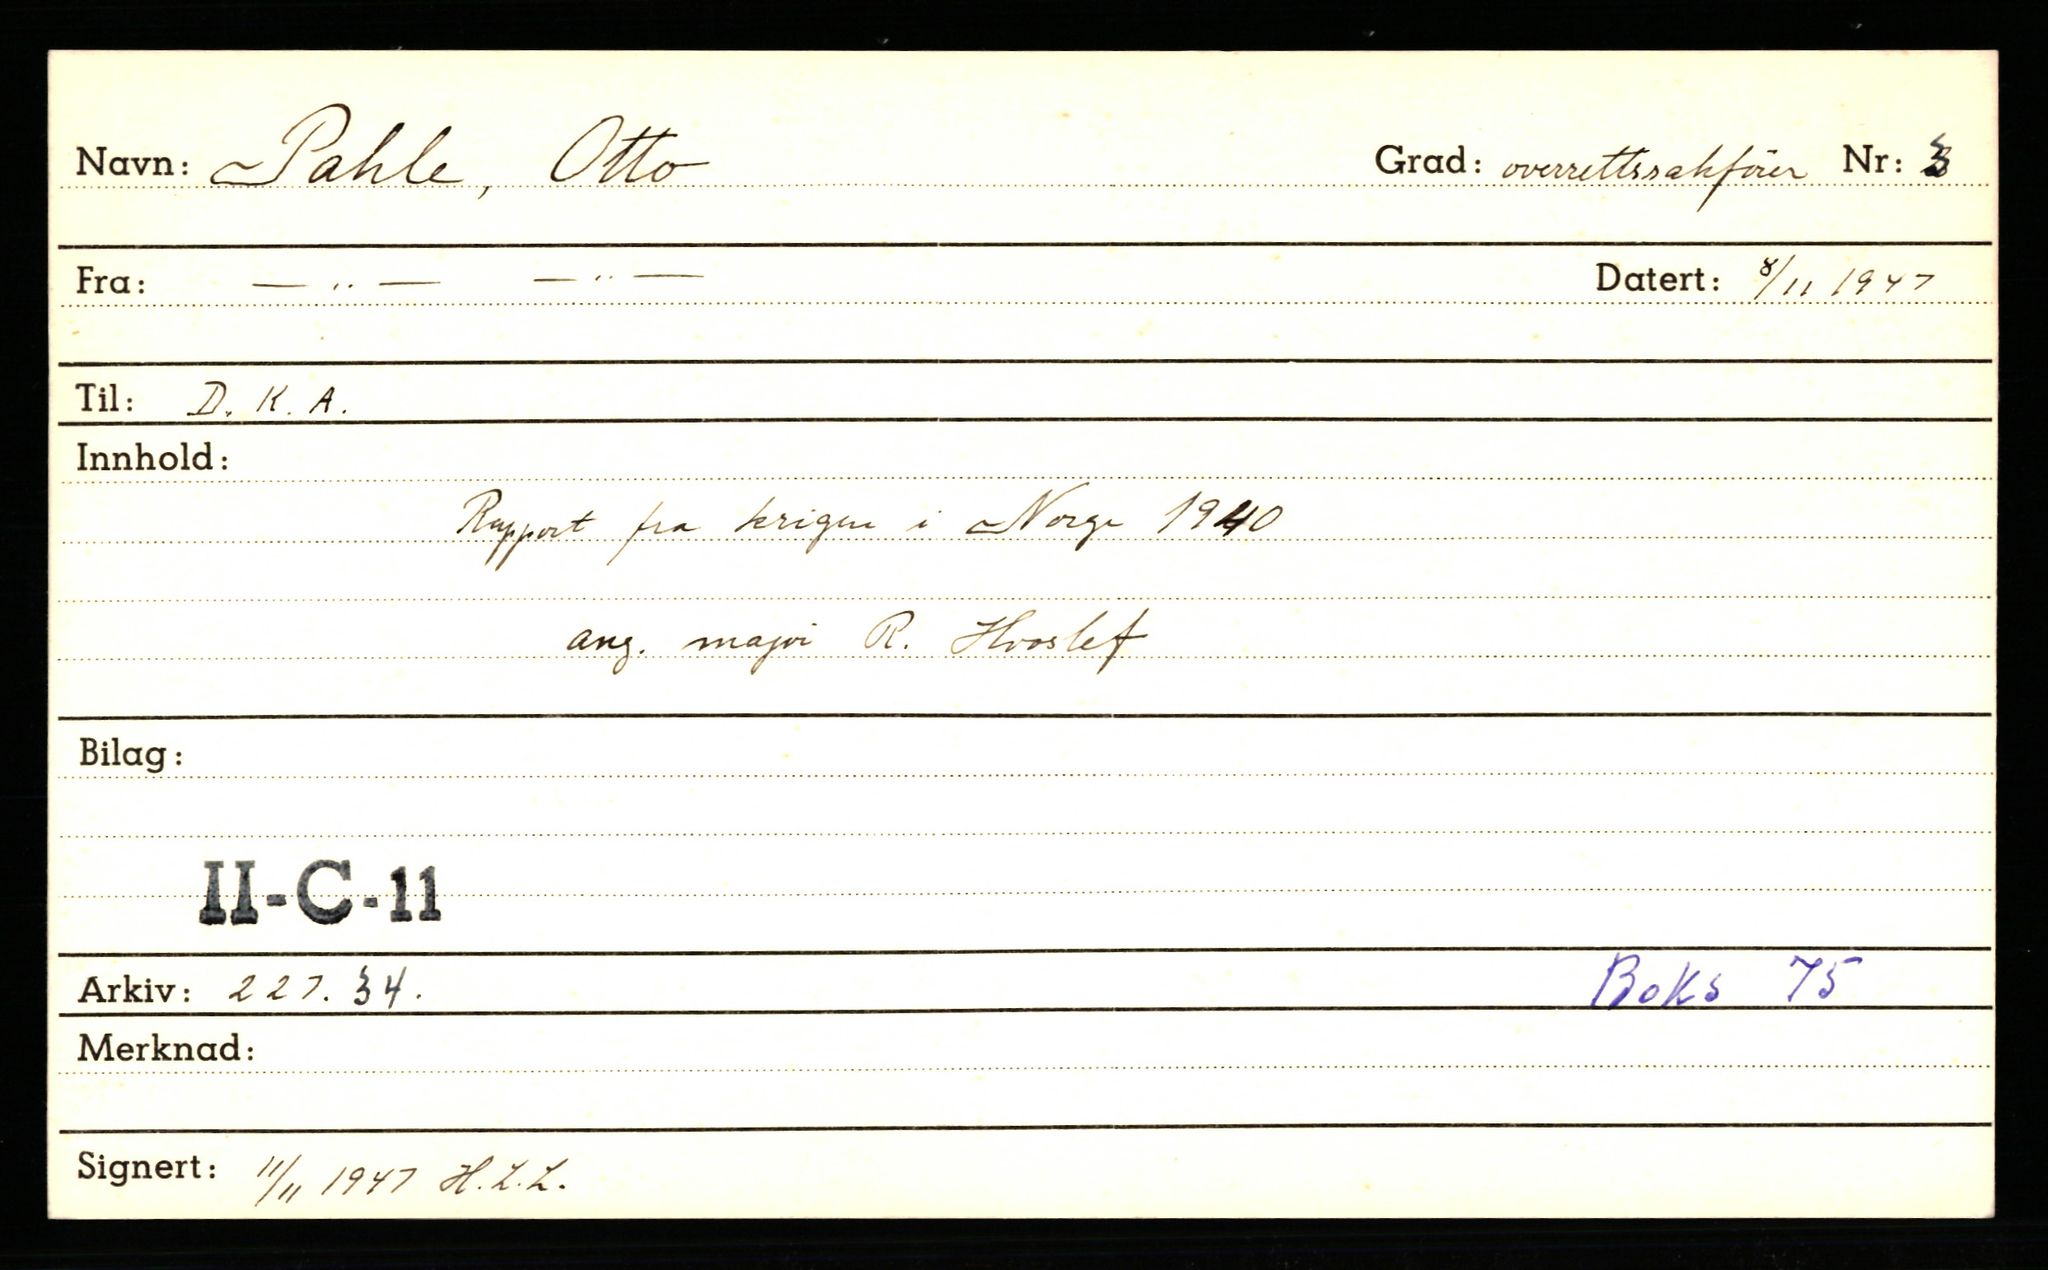 Navn: Pahle, Otto Grad: overrettssakfører Nr: 3
Fra: — " — — " — Datert: 8/11 1947
Til: D. K. A.
Innhold:
Rapport fra krigen i Norge 1940
ang. major R. Hvoslef
Bilag:
II-C-11
Arkiv: 227. 34. Boks 75
Merknad:
Signert: 11/11 1947 H.L.L.